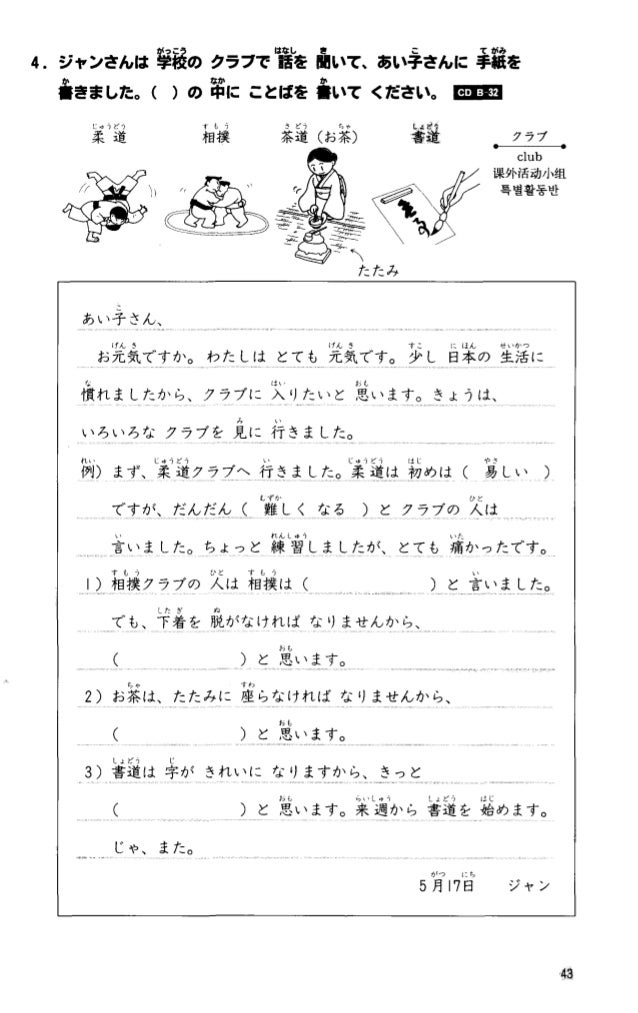 4. ジャンさんは 学校の クラブで 話を 聞いて、あい子さんに 手紙を
書きました。( )の 中に ことばを 書いて ください。 CD B-32
柔道 相撲 茶道(お茶) 書道 クラブ
club
课外活动小组
특별활동반
たたみ
あい子さん、
お元気ですか。わたしは とても 元気です。少し 日本の 生活に
慣れましたから、クラブに 入りたいと 思います。きょうは、
いろいろな クラブを 見に 行きました。
例) まず、柔道クラブへ 行きました。柔道は 初めは ( 易しい )
ですが、だんだん ( 難しく なる ) と クラブの 人は
言いました。ちょっと 練習しましたが、とても 痛かったです。
1) 相撲クラブの 人は 相撲は ( ) と 言いました。
でも、下着を 脱がなければ なりませんから、
( ) と 思います。
2) お茶は、たたみに 座らなければ なりませんから、
( ) と 思います。
3) 書道は 字が きれいに なりますから、きっと
( ) と 思います。来週から 書道を 始めます。
じゃ、また。
5月17日 ジャン
43